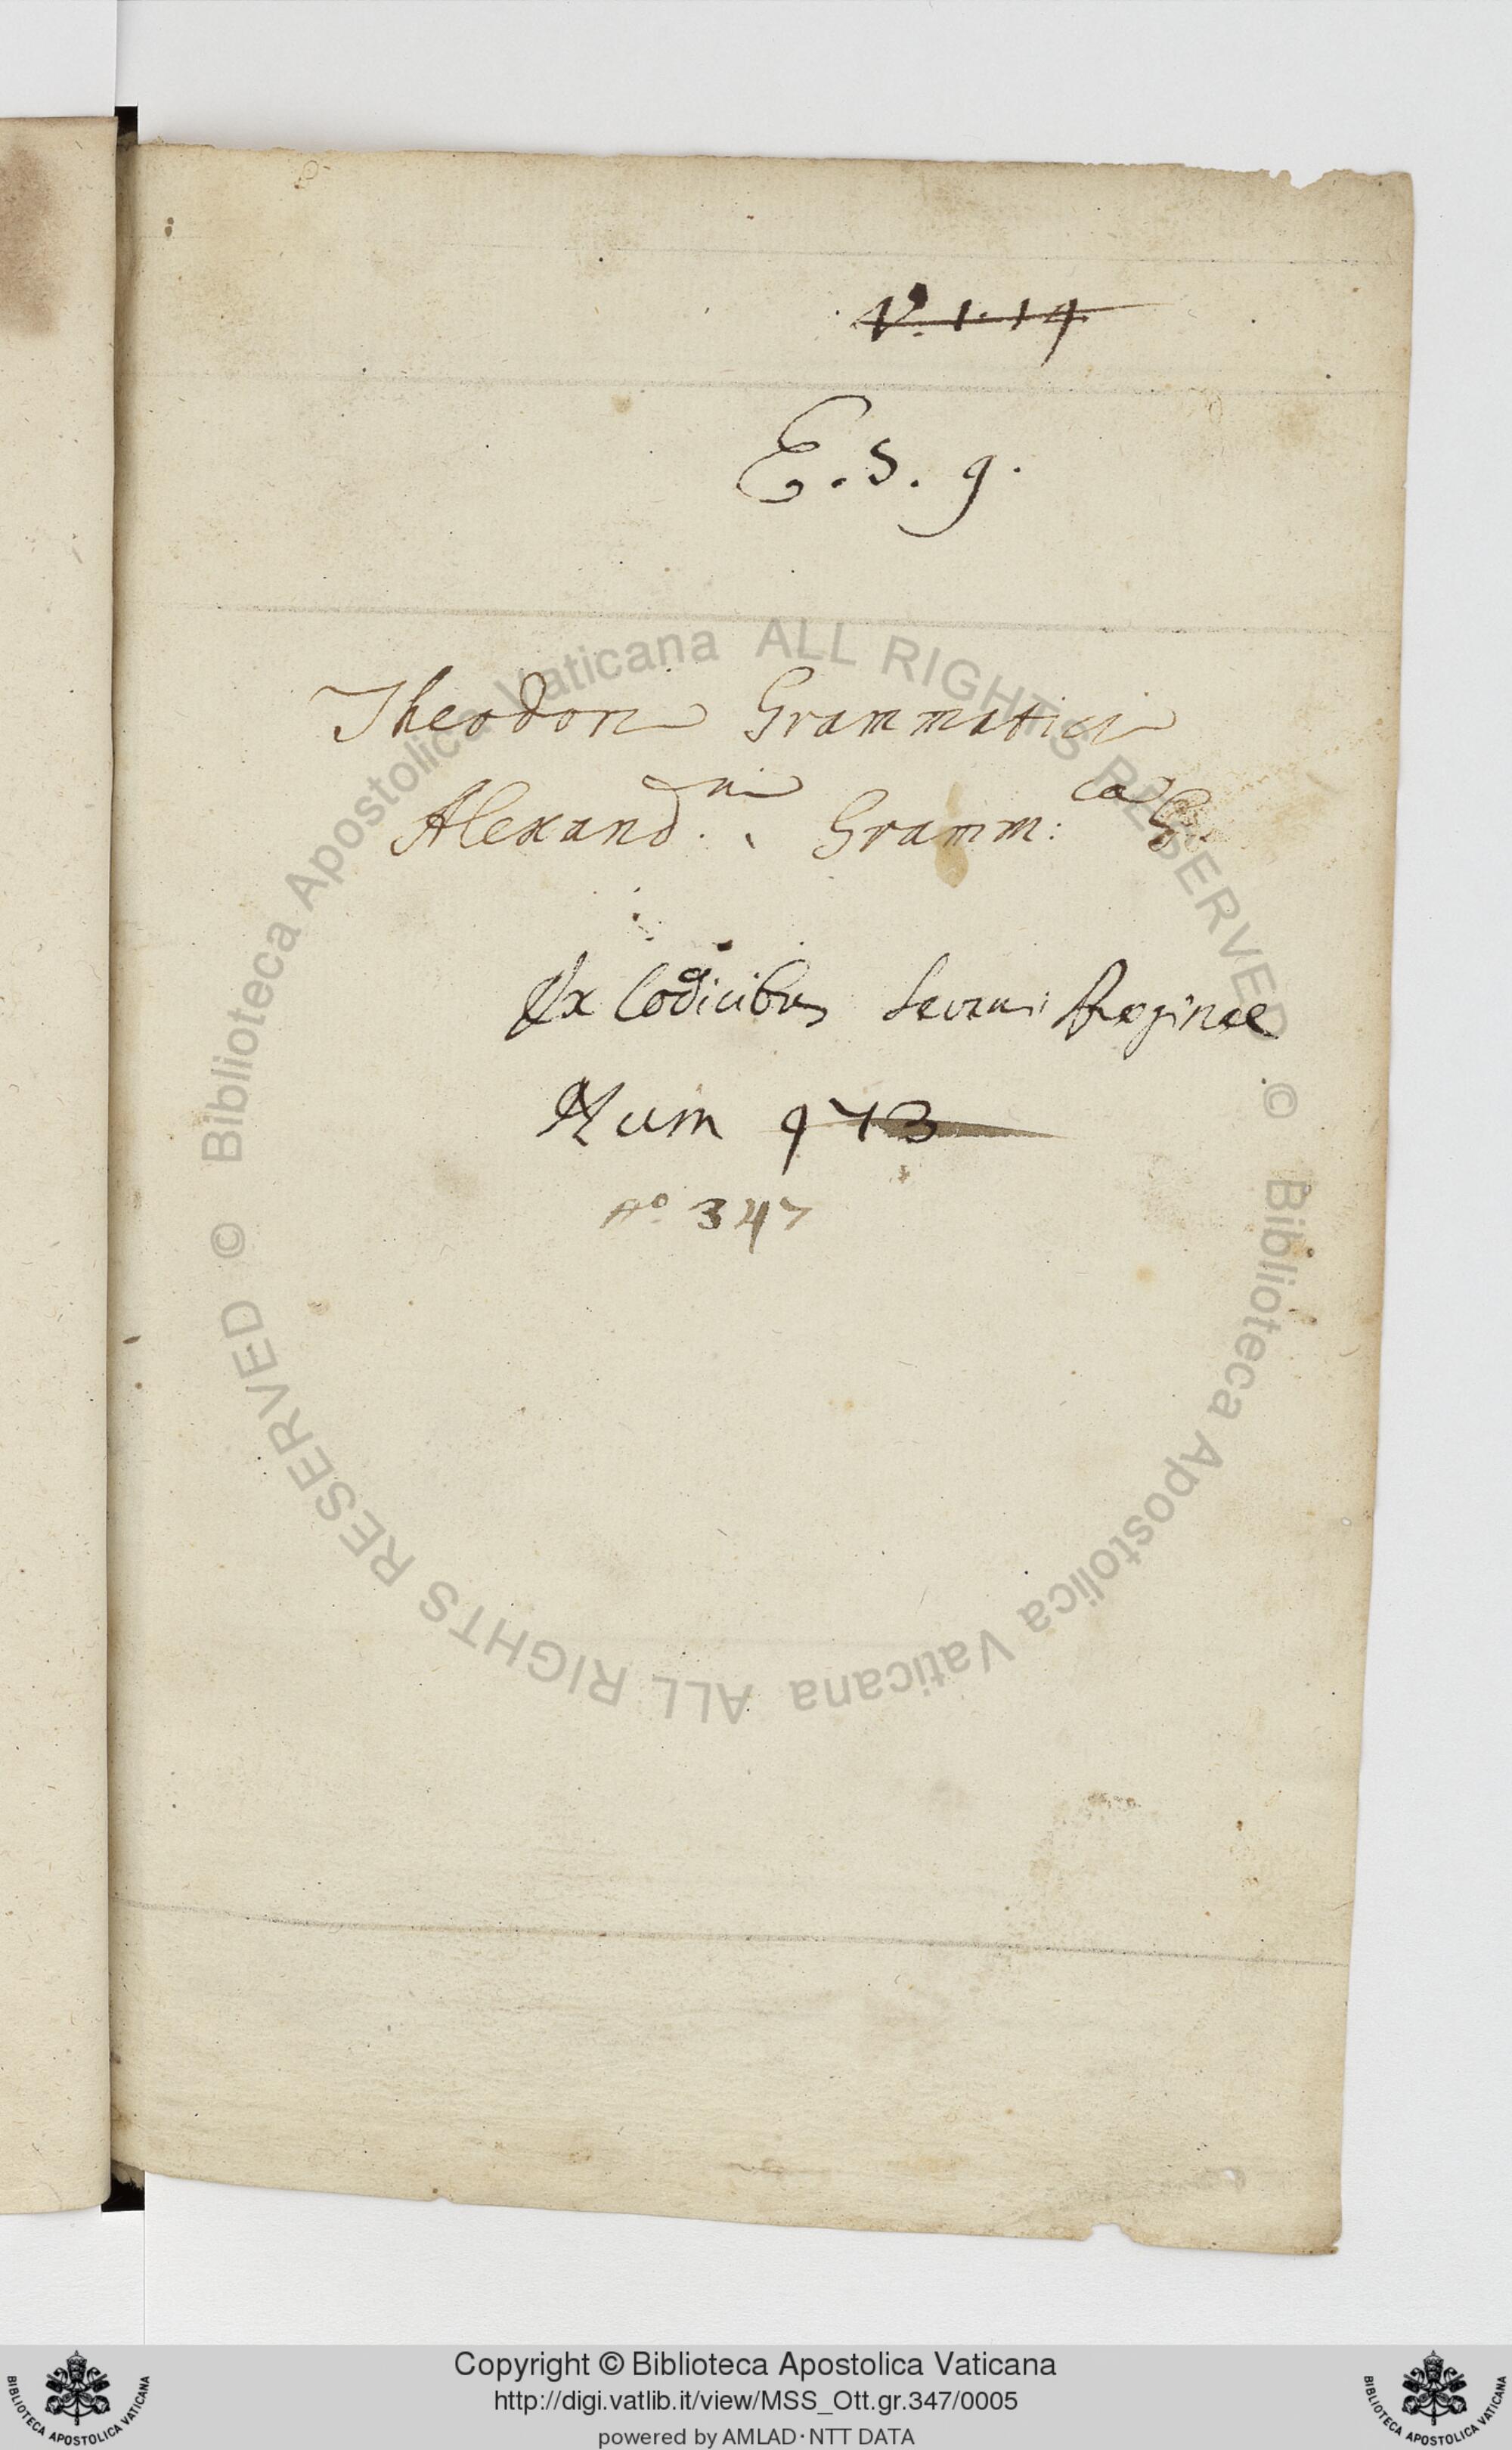 V. 1. 14
E. S. 9.
Theodori Grammatici
Alexand.ni Gramm:ca G.
Ex Codicibus Reginae
Num 973
no. 347
Biblioteca Apostolica Vaticana ALL RIGHTS RESERVED ©
Biblioteca Apostolica Vaticana ALL RIGHTS RESERVED ©
Copyright © Biblioteca Apostolica Vaticana
http://digi.vatlib.it/view/MSS_Ott.gr.347/0005
powered by AMLAD・NTT DATA
BIBLIOTECA APOSTOLICA VATICANA
BIBLIOTECA APOSTOLICA VATICANA